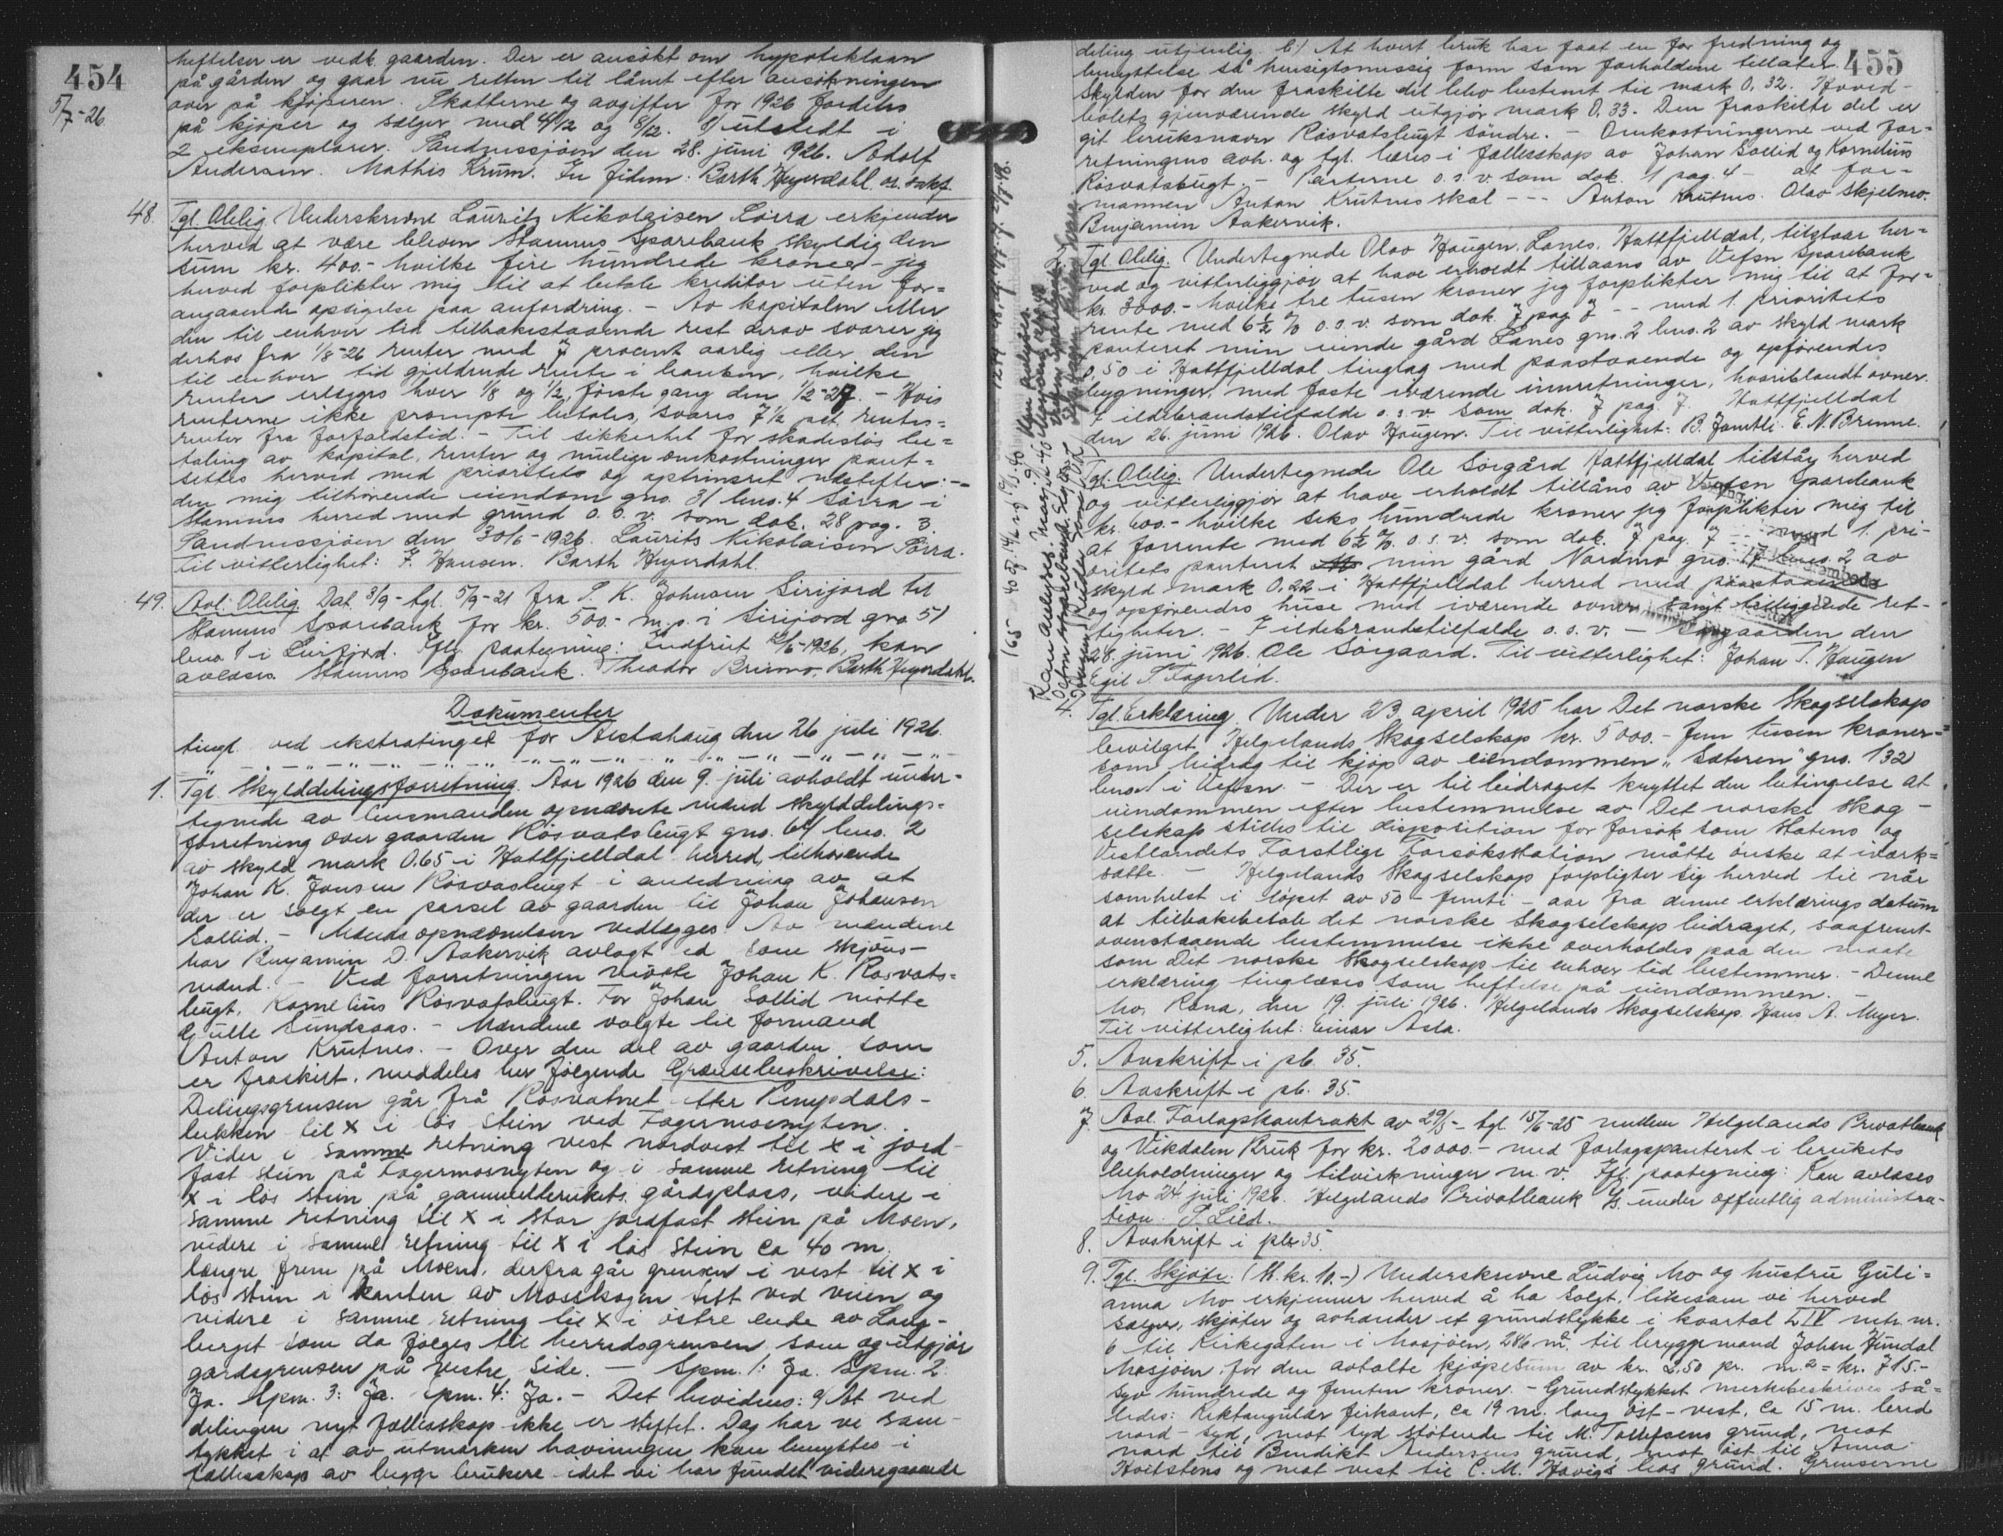 454
5/7-26
heftelser er vedk. gaarden. Der er ansökt om hypoteklaan
på gården og gaar nu retten til lånet efter ansökningen
over på kjøperen. Skatterne og avgifter for 1926 fordeles
på kjøper og sælger med 4/12 og 8/12. utstedt i
2 eksemplarer. Sandnessjöen den 28. juni 1926. Adolf
Andersen. Mathis Krum. En fidem: Barth Heyerdahl o.r. sakf.
48. Tgl. Oblig. Underskrevne Laurits Nikolaisen Sörra erkjender
herved at være bleven Stamnes Sparebank skyldig den
sum kr. 400.- hvilke fire hundrede kroner - jeg
herved forplikter mig til at betale kreditor uten for-
angaaende opsigelse paa anfordring. - Av kapitalen eller
den til enhver tid tilbakestaaende rest derav svarer jeg
derhos fra 1/8-26 renter med 7 procent aarlig eller den
til enhver tid gjeldende rente i banken, hvilke
renter erlegges hver 1/8 og 1/2, første gang den 1/2-27. - Hvis
renterne ikke prompte betales, svares 7½ pct. rentes-
renter fra forfaldstid. - Til sikkerhet for skadeslös be-
taling av kapital, renter og mulige omkostninger pant-
settes herved med prioritets og optrinsret næstefter: -
den mig tilhörende eiendom gno. 31 bno. 4 Sörra i
Stamnes herred med grund o.s.v. som dok. 28 pag. 3.
Sandnessjöen den 30/6-1926. Laurits Nikolaisen Sörra.
Til vitterlighet: F. Hansen. Barth Heyerdahl.
49. Avl. Oblig. Dat. 3/9- tgl. 5/9-21 fra P. K. Johnsen Sirijord til
Stamnes Sparebank for kr. 500.- m.p. i Sirijord gno 51
bno 1 i Leirfjord. Iflg. paategning: Indfriet 1926, kan
avlæses. Stamnes Sparebank. Theodor Brinmo, Barth Heyerdahl.
Dokumenter
tingl. ved ekstratinget for Alstahaug den 26 juli 1926.
1. Tgl. Skylddelingsforretning. Aar 1926 den 9. juli avholdt under-
tegnede av lensmanden opnævnte mænd skylddelings-
forretning over gaarden Rösvatsbugt gno. 64 bno. 2
av skyld mark 0.65 i Hattfjelldal herred, tilhörende
Johan K. Jensen Rösvasbugt i anledning av at
der er solgt en parsel av gaarden til Johan Johansen
Sollid. - Mændsopnævnelsen vedlægges. Av mændene
har Benjamin D. Aakervik avlagt ed som skjöns-
mænd. - Ved forretningen mötte Johan K. Rösvats-
bugt, Kornelius Rösvatsbugt. For Johan Sollid mötte
Gulle Sundsaas. - Mændene valgte til formand
Anton Krutnes. - Over den del av gaarden som
er fraskilt, meddeles her følgende Grænsebeskrivelse:
Delingsgrensen går fra Rösvatnet etter Rempdals-
bekken til X i lös stein ved Fagermosnyten.
Vider i samme retning vest nordvest til X i jord-
fast stein på Fagermosnyten og i samme retning til
X i lös stein på gammelbrukets gårdsplass, videre i
samme retning til X i stor jordfast stein på Moen,
videre i samme retning til X i lös stein ca 40 m.
længre frem på Moen, derfra går grensen i vest til X i
lös stein i kanten av Mosskogen tett ved veien og
videre i samme retning til X i östre ende av Lang-
berget som da følges til herredsgrensen som og utgjör
gardsgrensen på vestre side. - Spm. 1: Ja. Spm. 2:
Ja. Spm. 3: Ja. Spm. 4: Ja. - Det bevidnes: a) At ved
delingen nyt fælleskap ikke er stiftet. Dog har vi sam-
tykket i at av utmarken havningen kan benyttes i
fælleskap av begge brukere idet vi har fundet videregaaende
455
deling utjenlig. b) At hvert bruk har faat en for fredning og
benyttelse så hensigtsmessig form som forholdene tillater.
Skylden for den fraskilte del blev bestemt til mark 0,32. Hoved-
bölets gjenværende skyld utgjör mark 0,33. Den fraskilte del er
git bruksnavn Rösvatsbugt Söndre. - Omkostningerne ved for-
retningens avh. og tgl. bæres i fælleskap av Johan Sollid og Kornelius
Rösvatsbugt. - Parterne o.s.v. som dok. 1 pag. 4 - at for-
mannen Anton Krutnes skal --- Anton Krutnes. Olav Skjelmo.
Benjamin Aakervik.
2. Tgl. Oblig. Undertegnede Olav Haugen, Lanes, Hattfjelldal, tilstaar her-
ved og vitterliggjör at have erholdt tillaans av Vefsn Sparebank
kr. 3000.- hvilke tre tusen kroner jeg forplikter mig til at for-
rente med 6½ % o.s.v. som dok. 7 pag 7 -- med 1. prioritets
panteret min eiende gård Lanes gno. 2 bno. 2 av skyld mark
0,50 i Hattfjelldal tinglag med paastaaende og opförendes
bygninger, med faste iværende innretninger, hvoriblandt ovner.
I ildebrandstilfælde o.s.v. som dok. 7 pag. 7. Hattfjelldal
den 26. juni 1926. Olav Haugen. Til vitterlighet: B. Jamtli. E. N. Brenne.
Tgl. Oblig. Undertegnede Ole Sörgård Hattfjelldal, tilstår herved
og vitterliggjör at have erholdt tillåns av Vefsn Sparebank
kr. 600.- hvilke seks hundrede kroner jeg forplikter mig til
at forrente med 6½ %. o.s.v. som dok. 7 pag. 7 -- med 1. pri-
oritets panteret min gård Nordmo gno. 17 bno. 2 av
skyld mark 0,22 i Hattfjelldal herred med paastaaende
og opförendes huse med iværende ovner samt tilliggende ret-
tigheter. - I ildebrandstilfælde o.s.v. - Sörgaarden den
28. juni 1926. Ole Sörgaard. Til vitterlighet: Johan T. Haugen
Egil T. Fagerlid.
4. Tgl. Erklæring. Under 23 april 1925 har Det norske Skogselskap
bevilget Helgelands Skogselskap kr. 5000.- fem tusen kroner-
som bidrag til kjöp av eiendommen "Sæteren" gno. 132
bno 1 i Vefsn. - Der er til bidraget knyttet den betingelse at
eiendommen efter bestemmelse av Det norske Skog-
selskap stilles til disposition for forsök som Statens og
Vestlandets Forstlige Forsöksstation måtte önske at iverk-
sætte. - Helgelands Skogselskap forpligter sig herved til når
somhelst i löpet av 50 - femti - aar fra denne erklærings datum
at tilbakebetale det norske Skogselskap bidraget, saafremt
ovenstaaende bestemmelse ikke overholdes paa den maate
som Det norske Skogselskap til enhver tid bestemmer. - Denne
erklæring tinglæses som heftelse på eiendommen. -
Mo, Rana, den 19. juli 1926. Helgelands Skogselskap. Hans A. Meyer.
Til vitterlighet: Einar Asla.
5. Avskrift i pb. 35.
6. Avskrift i pb. 35.
7. Avl. Forlagskontrakt av 29/5- tgl. 15/6-25 mellem Helgelands Privatbank
og Vikdalen Bruk for kr. 20000.- med forlagspanteret i brukets
beholdninger og tilvirkninger m.v. Ifl. paategning: Kan avlæses
Mo 24 juli 1926. Helgelands Privatbank A/S. under offentlig administra-
tion. P. Lied.
8. Avskrift i pb 35.
9. Tgl. Skjöte: (St. kr. 10.-) Underskrevne Ludvig Mo og hustru Guli-
anna Mo erkjenner herved å ha solgt, likesom vi herved
sælger, skjöter og avhænder et grundstykke i kvartal LIV matr. nr.
6 til Kirkegaten i Mosjöen, 286 m² til bryggemand Johan Hundal
Mosjöen for den avtalte kjöpesum av kr. 2.50 pr. m² = kr. 715.-
syv hundrede og femten kroner. - Grundstykket merkebeskrives så-
ledes: Rektangulær firkant, ca 19 m. lang öst-vest, ca 15 m. bred
nord-syd, mot syd stötende til M. Tollefsens grund, mot
nord til Bendikt Andersens grund, mot öst til Anna
Kvitstens og mot vest til C. M. Havigs bos grund. Grenserne